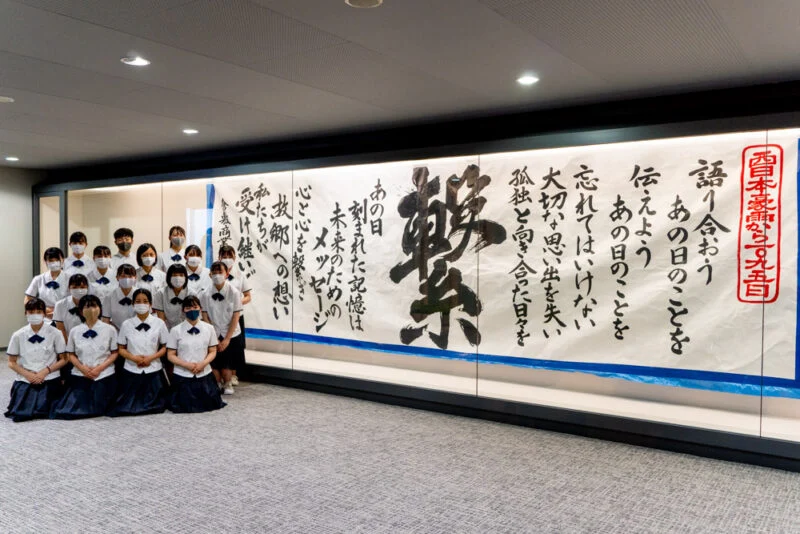 西日本豪雨から一〇九五日
語り合おう
あの日のことを
伝えよう
あの日のことを
忘れてはいけない
大切な思い出を失い
孤独と向き合った日々を
繋
あの日
刻まれた記憶は
未来のための
メッセージ
心と心を繋
故郷への想い
私たちが
受け継い